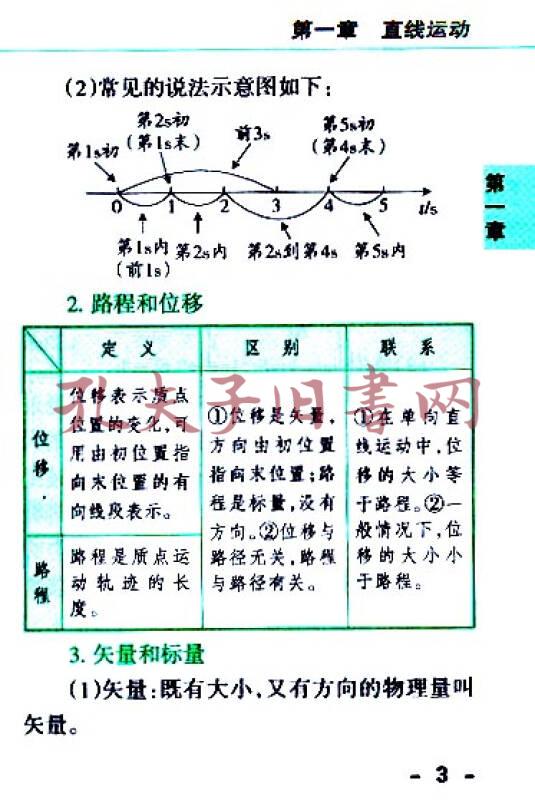 第一章 直线运动
(2)常见的说法示意图如下:
第1s初
第2s初
(第1s末)
前3s
第5s初
(第4s末)
0 1 2 3 4 5 t/s
第1s内
(前1s)
第2s内
第2s到第4s
第5s内
第一章
2. 路程和位移
定义 区别 联系
位移
位移表示质点
位置的变化,可
用由初位置指
向末位置的有
向线段表示。
①位移是矢量,
方向由初位置
指向末位置;路
程是标量,没有
方向。②位移与
路径无关,路程
与路径有关。
①在单向直
线运动中,位
移的大小等
于路程。②一
般情况下,位
移的大小小
于路程。
路程
路程是质点运
动轨迹的长
度。
孔夫子旧书网
3. 矢量和标量
(1)矢量:既有大小,又有方向的物理量叫
矢量。
- 3 -